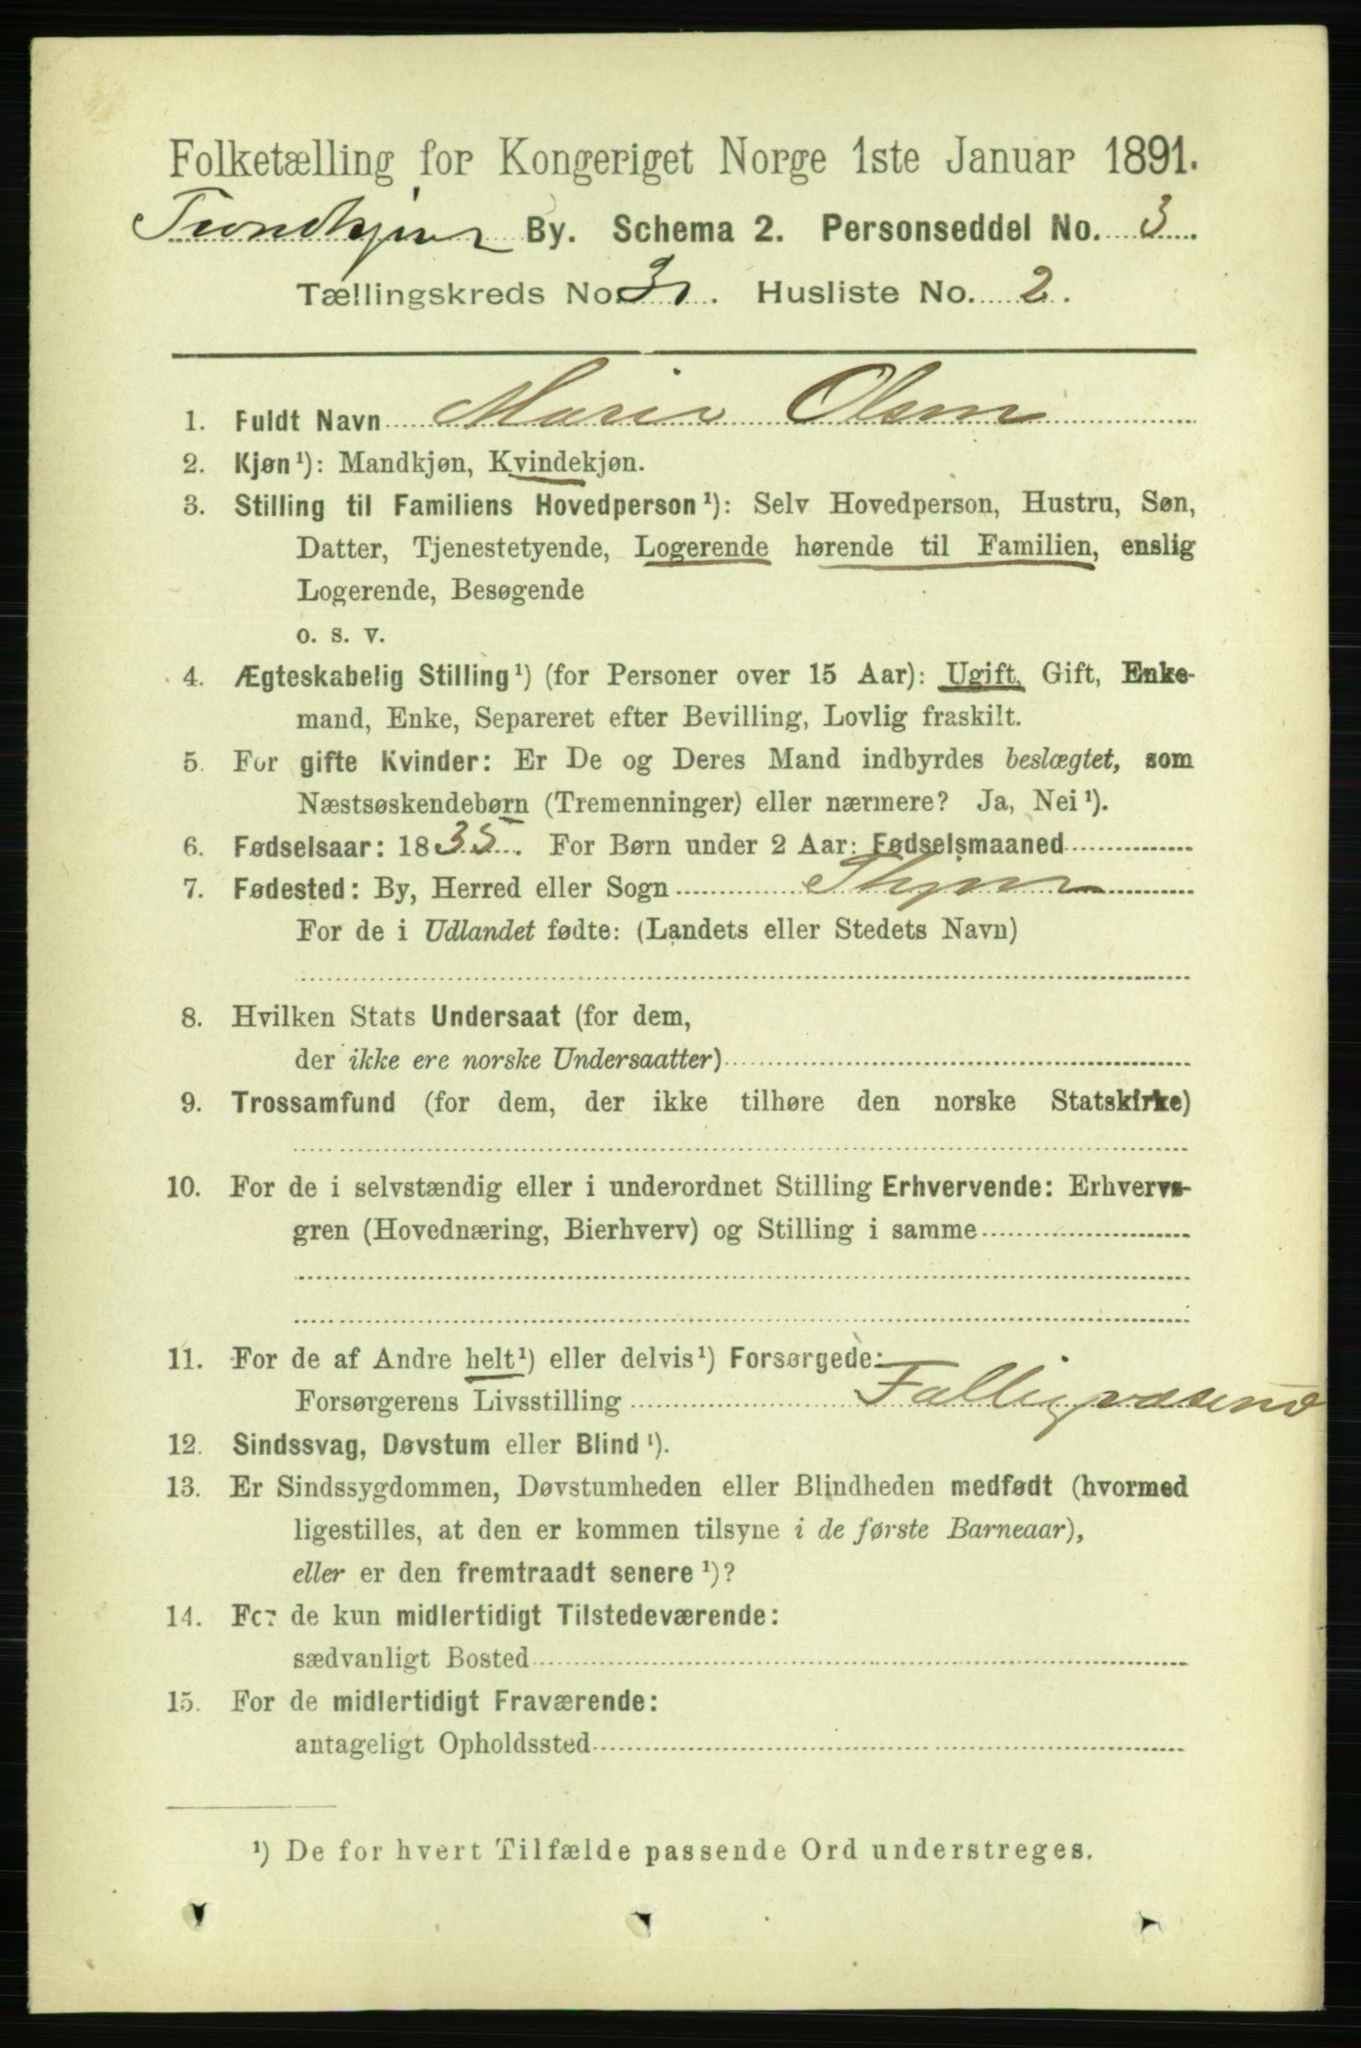 Folketælling for Kongeriget Norge 1ste Januar 1891.
Trondhjem By. Schema 2. Personseddel No. 3.
Tællingskreds No. 31. Husliste No. 2.
1. Fuldt Navn Marie Olsen
2. Kjøn¹): Mandkjøn, Kvindekjøn.
3. Stilling til Familiens Hovedperson¹): Selv Hovedperson, Hustru, Søn,
Datter, Tjenestetyende, Logerende hørende til Familien, enslig
Logerende, Besøgende
o. s. v.
4. Ægteskabelig Stilling¹) (for Personer over 15 Aar): Ugift, Gift, Enke-
mand, Enke, Separeret efter Bevilling, Lovlig fraskilt.
5. For gifte Kvinder: Er De og Deres Mand indbyrdes beslægtet, som
Næstsøskendebørn (Tremenninger) eller nærmere? Ja, Nei¹).
6. Fødselsaar: 1835. For Børn under 2 Aar: Fødselsmaaned
7. Fødested: By, Herred eller Sogn Thjem
For de i Udlandet fødte: (Landets eller Stedets Navn)
8. Hvilken Stats Undersaat (for dem,
der ikke ere norske Undersaatter)
9. Trossamfund (for dem, der ikke tilhøre den norske Statskirke)
10. For de i selvstændig eller i underordnet Stilling Erhvervende: Erhvervs-
gren (Hovednæring, Bierhverv) og Stilling i samme
11. For de af Andre helt¹) eller delvis¹) Forsørgede:
Forsørgerens Livsstilling Fattigvæsend
12. Sindssvag, Døvstum eller Blind¹).
13. Er Sindssygdommen, Døvstumheden eller Blindheden medfødt (hvormed
ligestilles, at den er kommen tilsyne i de første Barneaar),
eller er den fremtraadt senere¹)?
14. For de kun midlertidigt Tilstedeværende:
sædvanligt Bosted
15. For de midlertidigt Fraværende:
antageligt Opholdssted
¹) De for hvert Tilfælde passende Ord understreges.